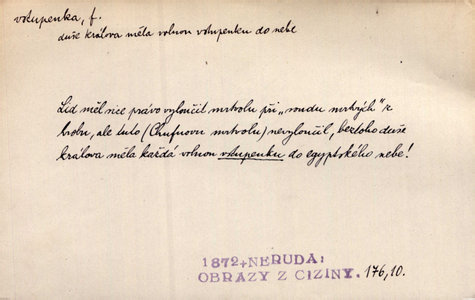 vstupenka, f.
duše králova měla volnou vstupenku do nebe
Lid měl sice právo vyloučit mrtvolu při „soudu mrtvých" z
hrobu, ale tuto (Chufuovu mrtvolu) nevyloučil, beztoho duše
králova měla každá volnou vstupenku do egyptského nebe!
1872, NERUDA:
OBRAZY Z CIZINY. 176,10.